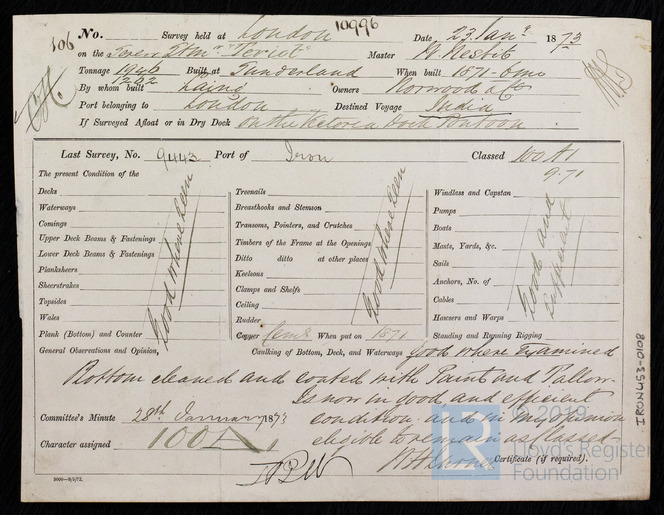 No. Survey held at London 10996 Date 23 Jany 1873
106 on the Screw Stmr "Teviot" Master W. Nesbit
Tonnage 1946 Built at Sunderland When built 1871-8mo
1262
By whom built Laing Owners Norwood & Co
Port belonging to London Destined Voyage India
If Surveyed Afloat or in Dry Dock On the Victoria Dock Pontoon
Last Survey, No. 9443 Port of Iron Classed 100 A1
9.71
The present Condition of the
Decks
Waterways
Comings
Upper Deck Beams & Fastenings
Lower Deck Beams & Fastenings
Planksheers
Sheerstrakes
Topsides
Wales
Plank (Bottom) and Counter
Good where seen
Treenails
Breasthooks and Stemson
Transoms, Pointers, and Crutches
Timbers of the Frame at the Openings
Ditto ditto at other places
Keelsons
Clamps and Shelfs
Ceiling
Rudder
Copper Cemt When put on 1871
Good where seen
Windlass and Capstan
Pumps
Boats
Masts, Yards, &c.
Sails
Anchors, No. of
Cables
Hawsers and Warps
Standing and Running Rigging
Good and
Sufficient
General Observations and Opinion, Caulking of Bottom, Deck, and Waterways Good where Examined
Bottom cleaned and coated with Paint and Tallow
Is now in good and efficient
condition and in my opinion
eligible to remain as classed
Committee's Minute 28th January 1873
Character assigned 100A1
Certificate (if required).
3000—9/5/72.
IRON453-0108
LR © 2019
Lloyd's Register
Foundation